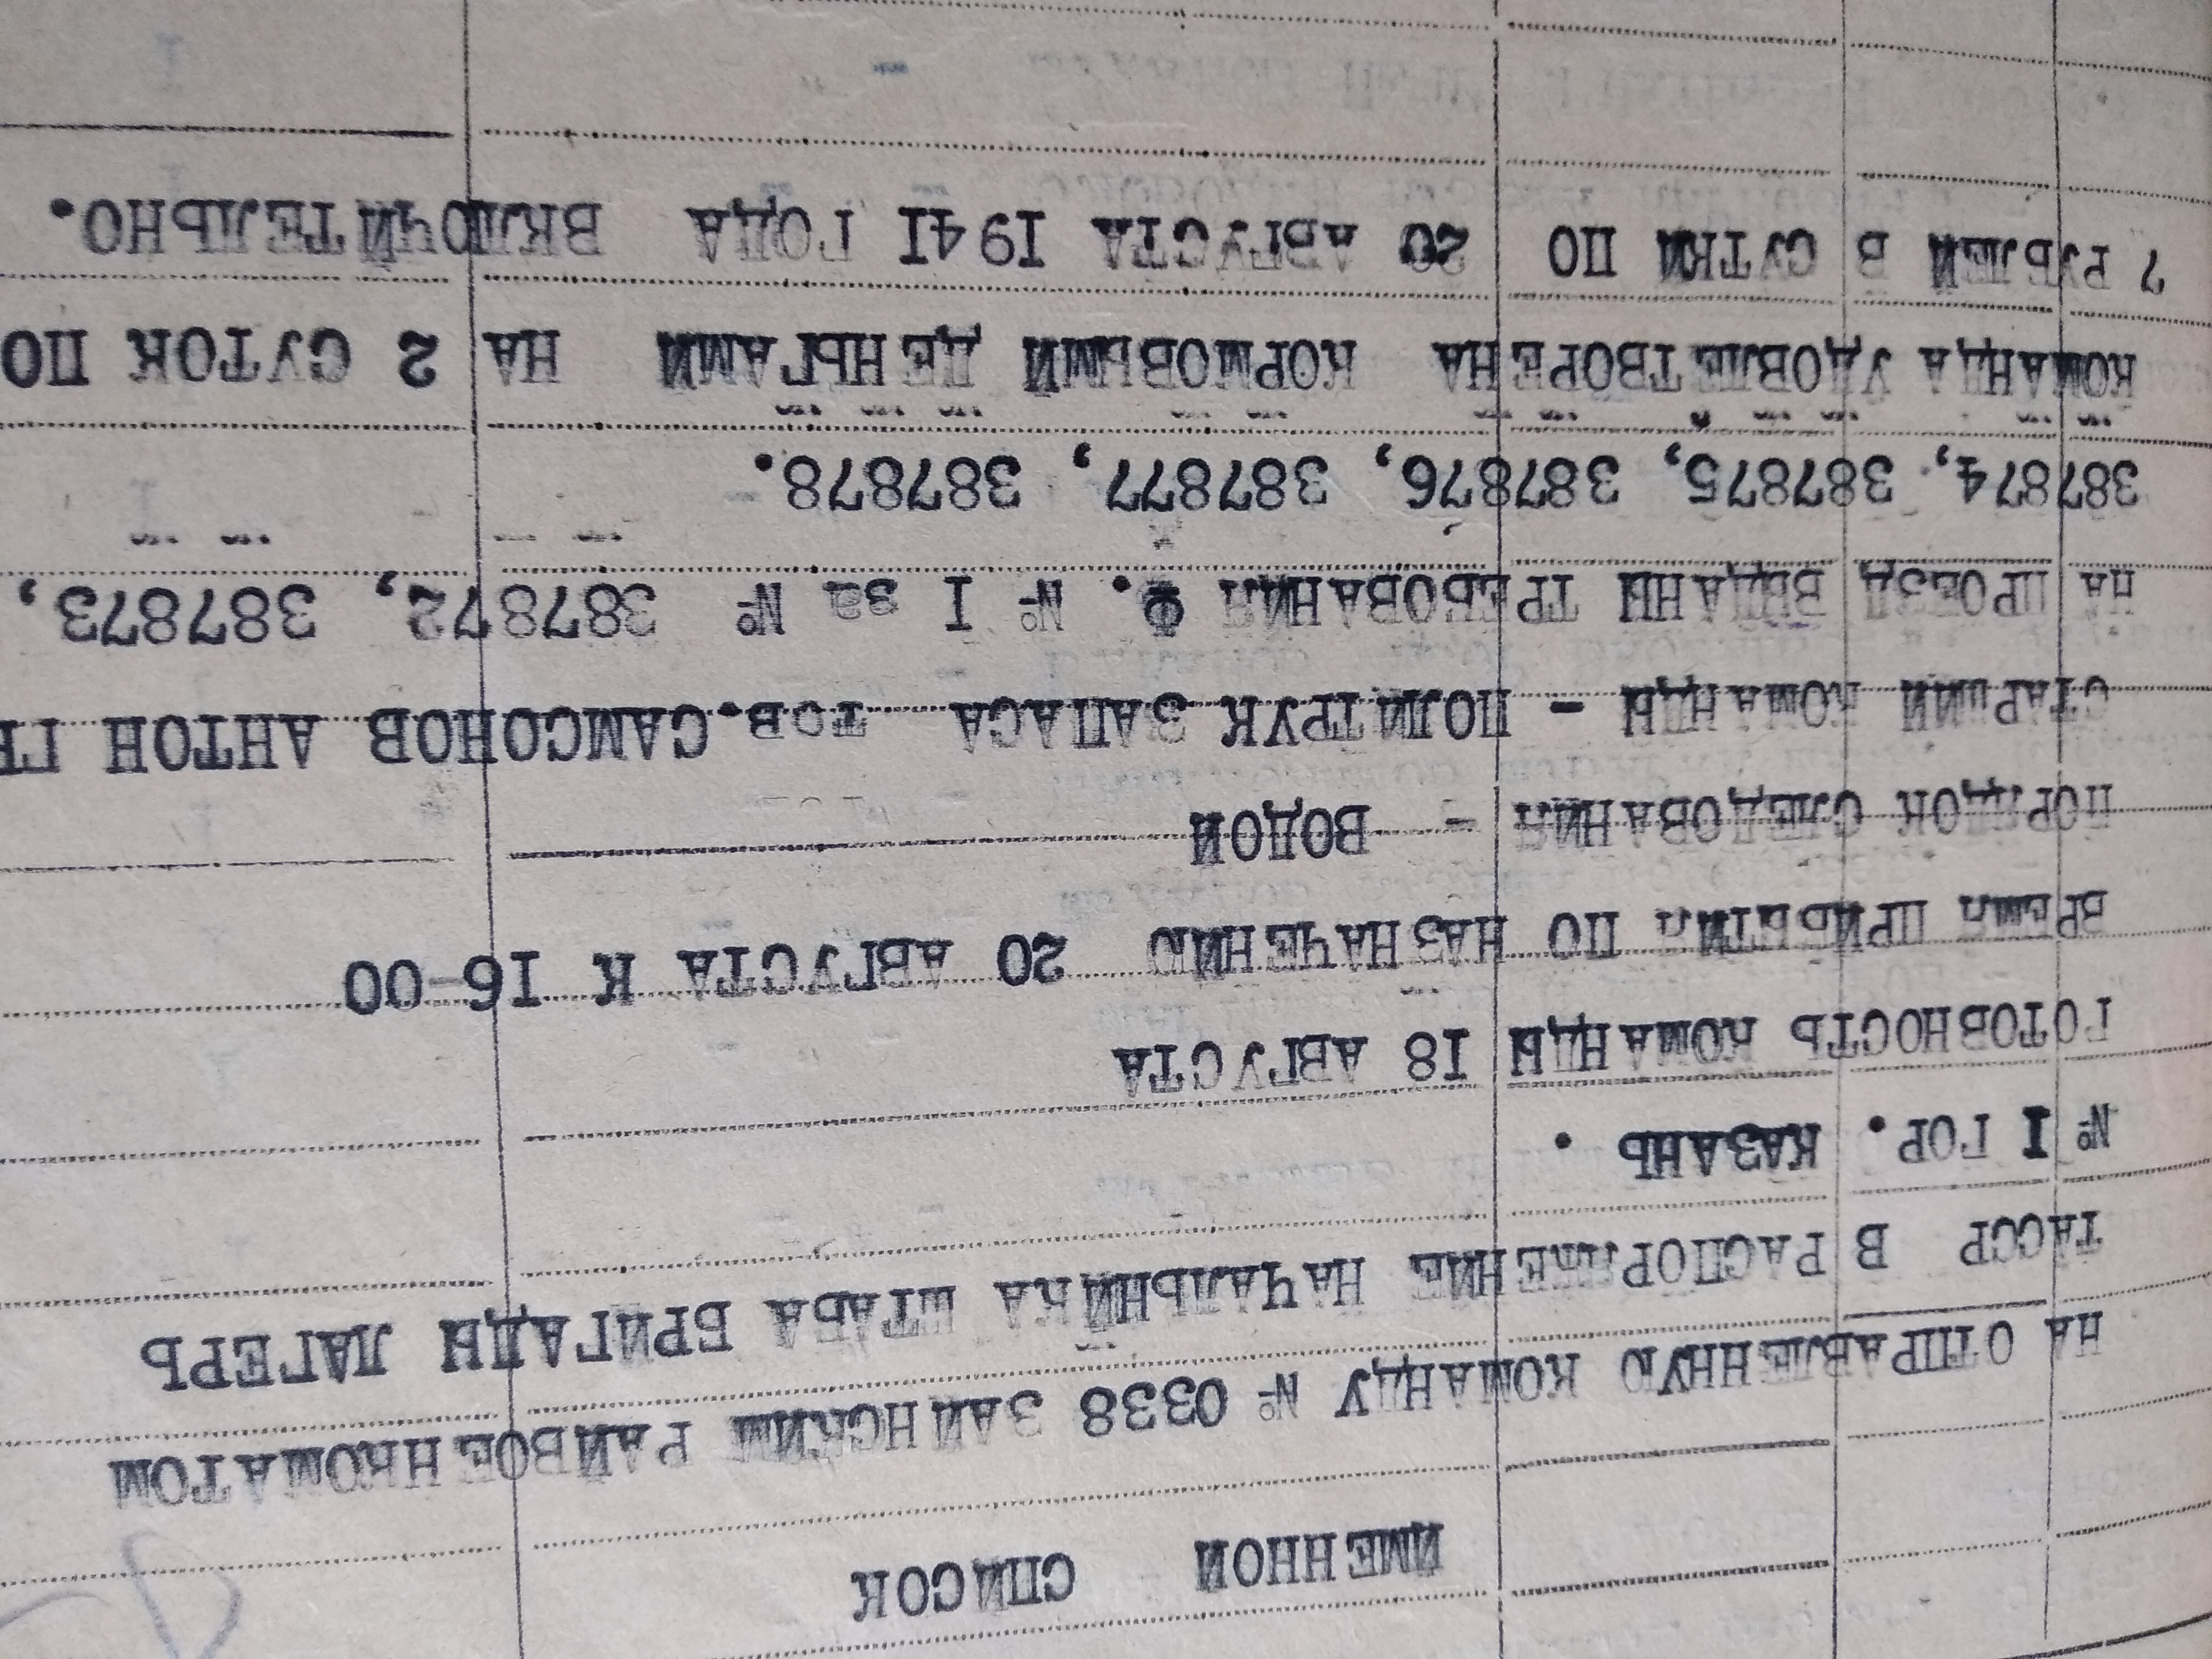 ИМЕННОЙ СПИСОК
НА ОТПРАВЛЕННУЮ КОМАНДУ № 0338 ЗАИНСКИМ РАЙВОЕНКОМАТОМ
ТАССР В РАСПОРЯЖЕНИЕ НАЧАЛЬНИКА ШТАБА БРИГАДЫ ЛАГЕРЬ
№ I ГОР. КАЗАНЬ .
ГОТОВНОСТЬ КОМАНДЫ I8 АВГУСТА
ВРЕМЯ ПРИБЫТИЯ ПО НАЗНАЧЕНИЮ 20 АВГУСТА К I6-00
ПОРЯДОК СЛЕДОВАНИЯ - ВОДОЙ
СТАРШИЙ КОМАНДЫ - ПОЛИТРУК ЗАПАСА тов.САМСОНОВ АНТОН ГР
НА ПРОЕЗД ВЫДАНЫ ТРЕБОВАНИЯ Ф. № I за № 387872, 387873,
387874, 387875, 387876, 387877, 387878.
КОМАНДА УДОВЛЕТВОРЕНА КОРМОВЫМИ ДЕНЬГАМИ НА 2 СУТОК ПО
7 РУБЛЕЙ В СУТКИ ПО 20 АВГУСТА I94I ГОДА ВКЛЮЧИТЕЛЬНО.